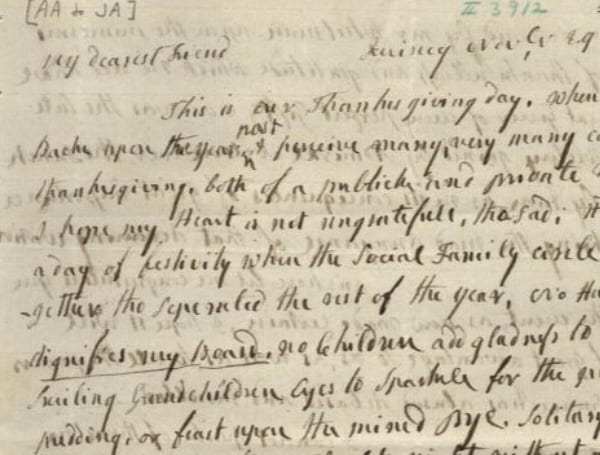 [AA to JA]
II 3912
My dearest Friend Quincy Novbr 29
This is our Thanksgiving day. when
Back upon the year past & perceive many, very many ca
thanksgiving, both of a publick and private
I hope my Heart is not ungratefull, tho sad; it
a day of festivity when the Social Family circle
gether tho seperated the rest of the year,
dignifies my Board, no Children add gladness to
Smiling Grandchildren Eyes to Sparkle for the
pudding, or feast upon the minced Pye. Solitary